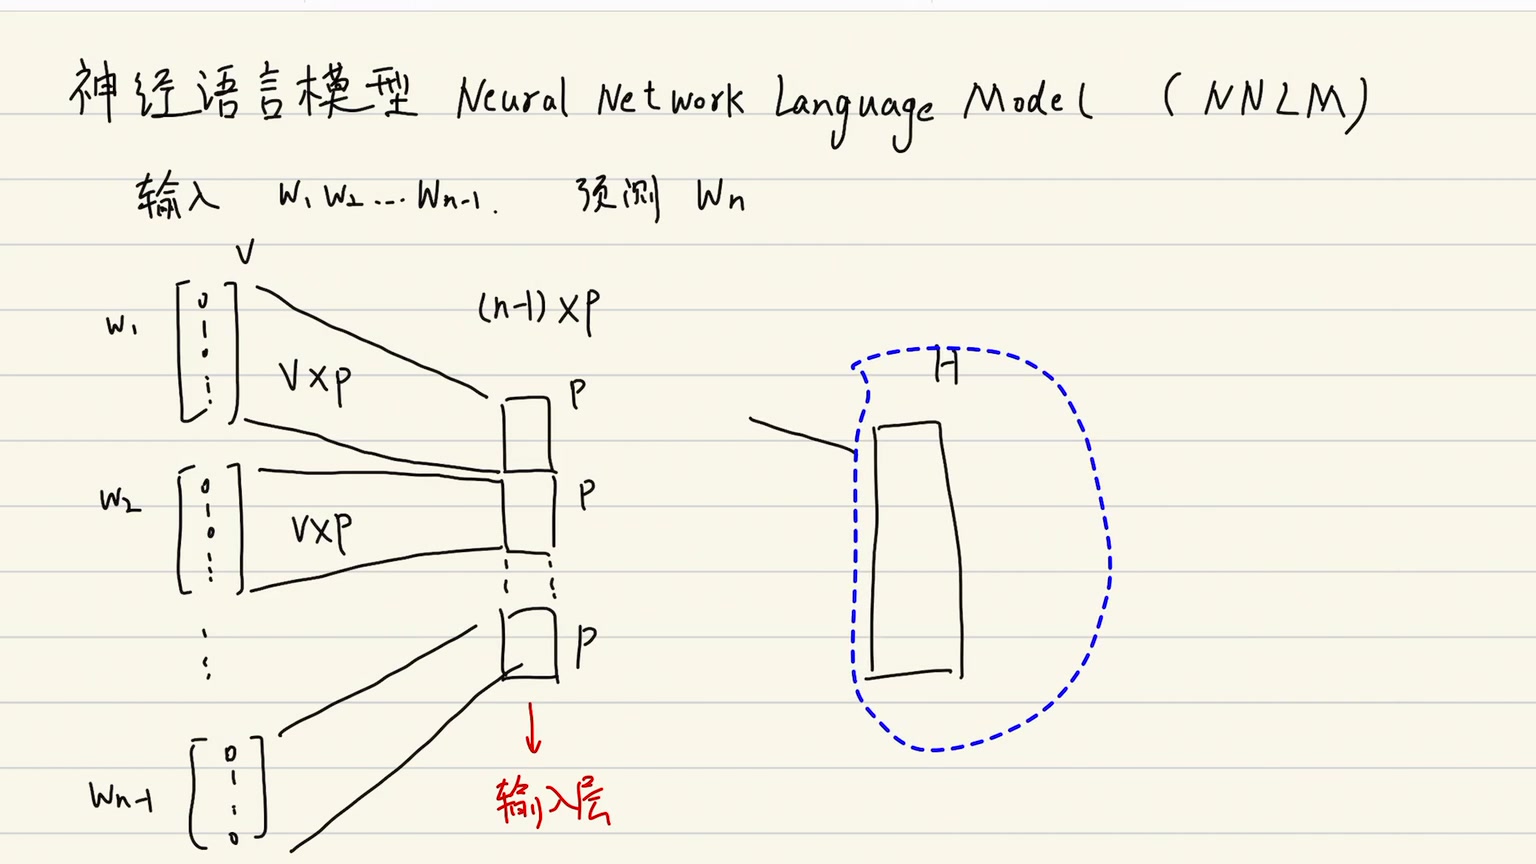 神经语言模型 Neural Network Language Model (NNLM)
输入 W1 W2 ... Wn-1. 预测 Wn
V
W1 [0 1 0 ⋮] V×P
(n-1)×P
P
H
W2 [0 1 0 ⋮] V×P
P
⋮
P
Wn-1 [0 1 ⋮ 0]
输入层